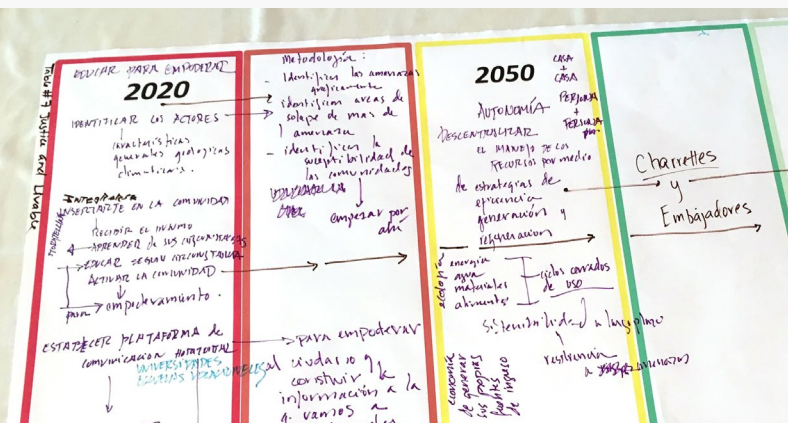 Table #7 Justice and Livable
EDUCAR PARA EMPODERAR
2020
IDENTIFICAR LOS ACTORES
características
generales geologicas
climaticas.
INTEGRARSE
INSERTARTE EN LA COMUNIDAD
RECIBIR EL INSUMO
APRENDER de sus
EDUCAR SEGUN
ACTIVAR LA COMUNIDAD
para empoderamiento.
ESTABLECER PLATAFORMA de
comunicación HORIZONTAL
UNIVERSIDADES
ESCUELAS VOCACIONALES
Metodología:
- Identifican las amenazas
graficamente
identifican areas de
solape de mas de
1 amenaza
- identifican la
suceptibilidad de
las comunidades
empezar por
ahi
para empoderar
al ciudadano y
construir la
información a la
q. vamos a
2050
CASA
+
CASA
PERSONA
+
PERSONA
AUTONOMÍA
DESCENTRALIZAR
EL MANEJO DE LOS
RECURSOS por medio
de estrategias de
eficiencia
generación y
regeneracion
ecología
energía
agua
materiales
alimentos
ciclos cerrados
de uso
sistenibilidad a largo plazo
resiliencia
a
economía
de generar
sus propias
fuentes
de ingreso
Charrettes
y
Embajadores